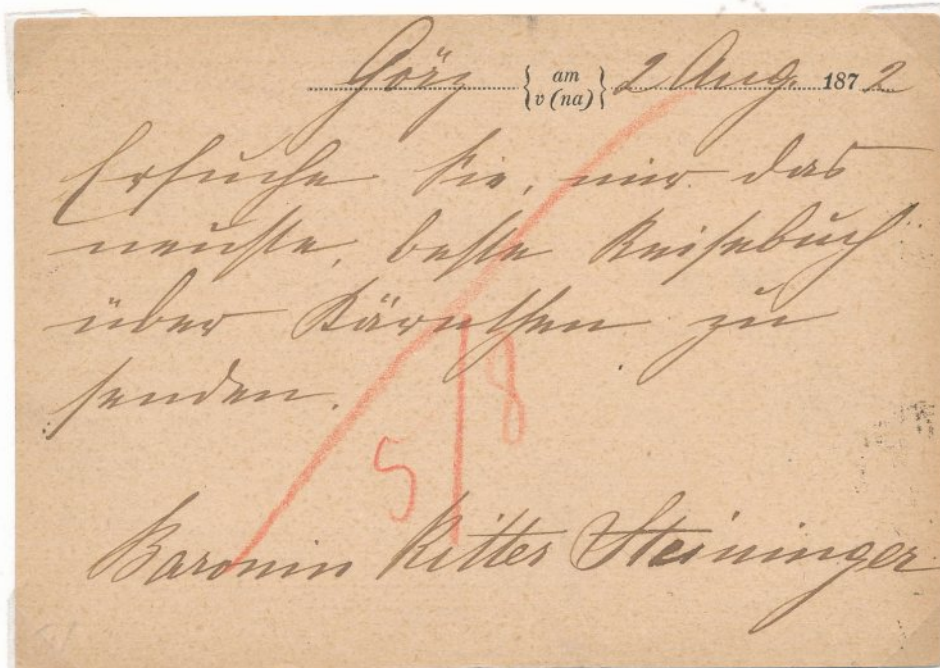 Görz {am v (na)} 2 Aug. 1872
Ersuche Sie, mir das
neuste, beste Reisebuch
über Kärnthen zu
senden.
5/8
Baronin Ritter Steininger